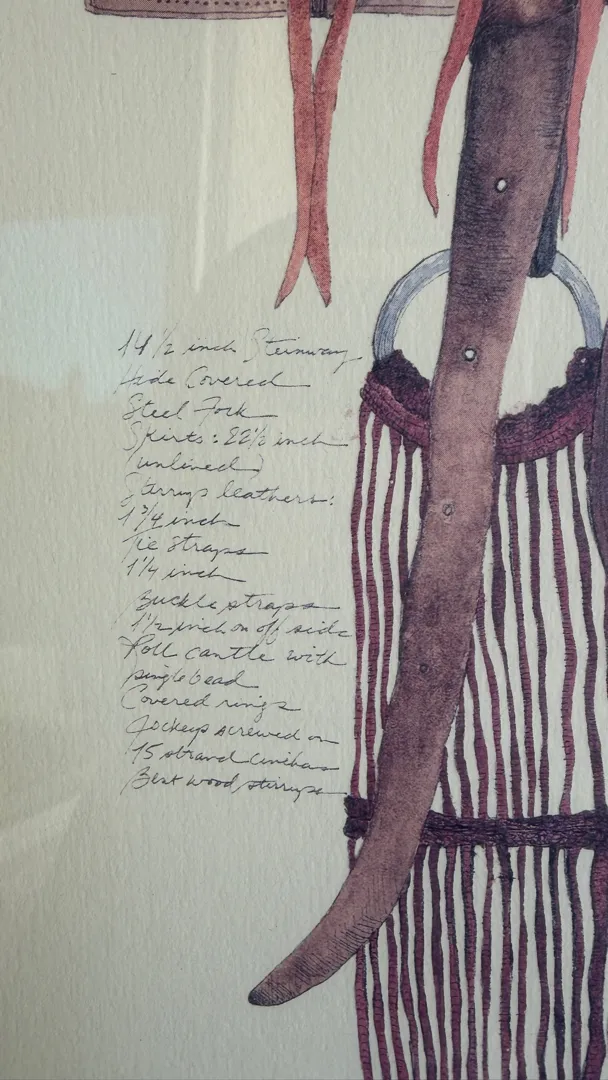 14 1/2 inch Steinway
Hide Covered
Steel Fork
Skirts: 22 1/2 inch
(unlined)
Stirrup leathers:
1 3/4 inch
Tie Straps
1 1/4 inch
Buckle straps
1 1/2 inch on off side
Roll cantle with
single bead
Covered rings
Jockeys screwed on
15 strand Cinchas
Bent wood stirrups